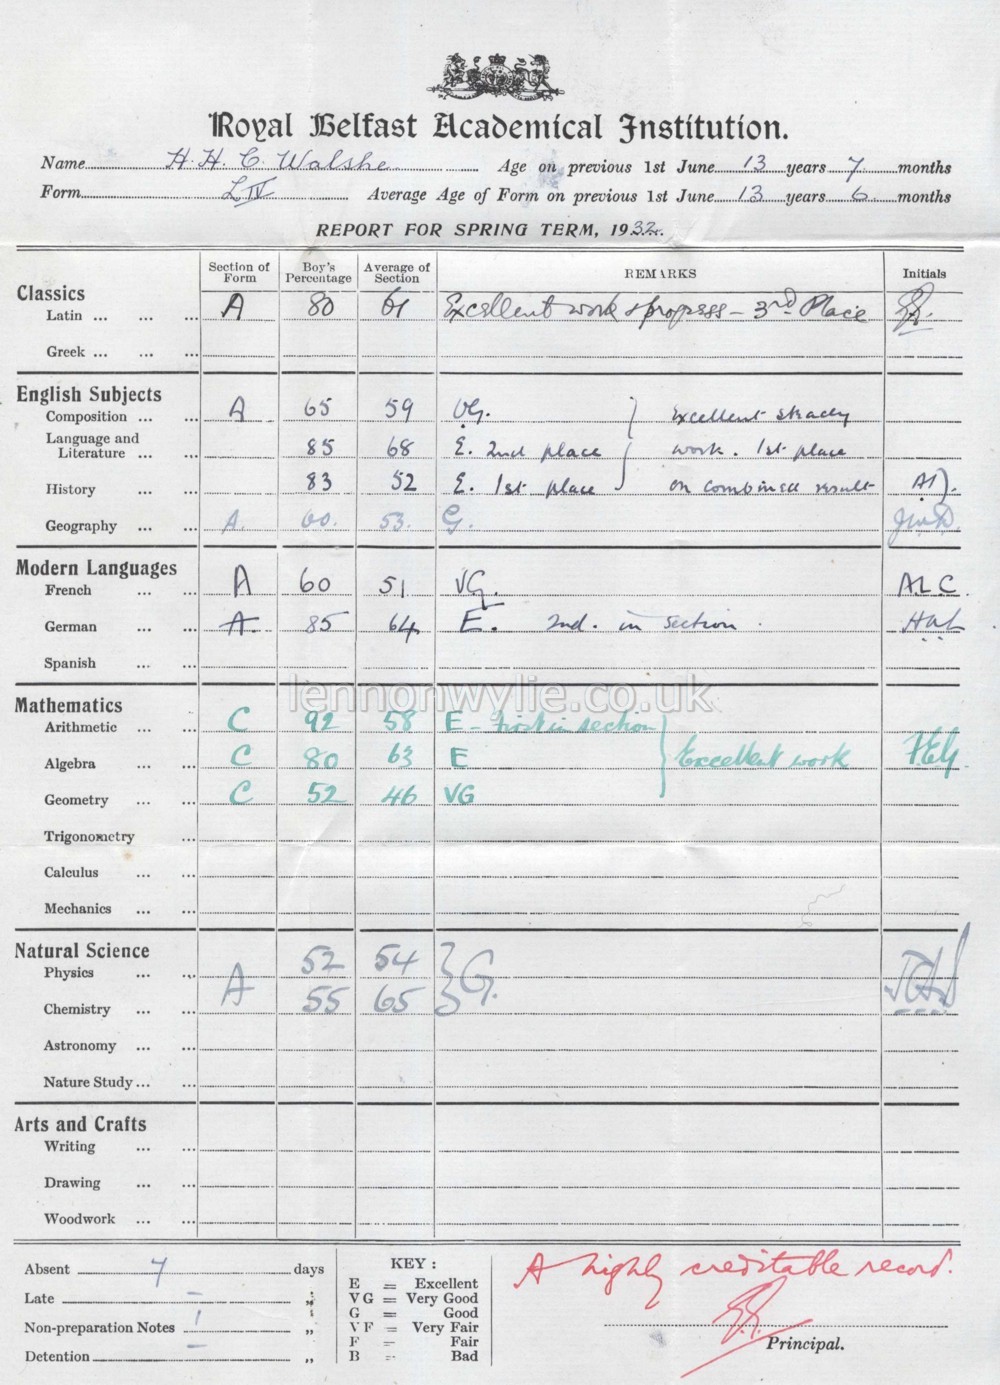 Royal Belfast Academical Institution.
Name H. H. C. Walshe Age on previous 1st June 13 years 7 months
Form L IV Average Age of Form on previous 1st June 13 years 6 months
REPORT FOR SPRING TERM, 1932.
Section of Form Boy's Percentage Average of Section REMARKS Initials
Classics
Latin ... ... ... A 80 61 Excellent work & progress - 3rd Place
Greek ... ... ...
English Subjects
Composition ... ... A 65 59 VG. Excellent steady
Language and
Literature ... ... 85 68 E. 2nd place work. 1st place
History ... ... 83 52 E. 1st place on combined result
Geography ... ... A. 60. 53. G.
Modern Languages
French ... ... A 60 51. VG. A.L.C.
German ... ... A. 85 64 E. 2nd. in section.
Spanish ... ...
lennonwylie.co.uk
Mathematics
Arithmetic ... ... C 92 58 E - First in section
Algebra ... ... C 80 63 E Excellent work
Geometry ... ... C 52 46 VG
Trigonometry ...
Calculus ... ...
Mechanics ... ...
Natural Science
Physics ... ... A 52 54 G.
Chemistry ... ... 55 65
Astronomy ... ...
Nature Study ... ...
Arts and Crafts
Writing ... ...
Drawing ... ...
Woodwork ... ...
Absent 7 days
Late - "
Non-preparation Notes 1 "
Detention - "
KEY :
E = Excellent
VG = Very Good
G = Good
VF = Very Fair
F = Fair
B = Bad
A highly creditable record.
Principal.